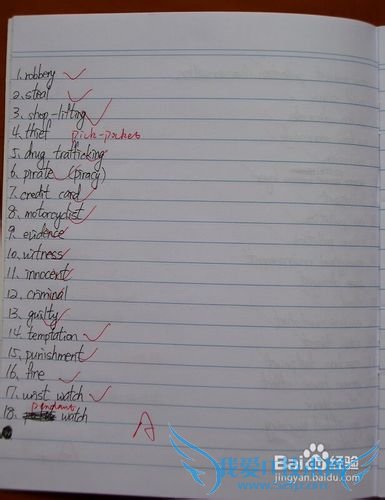 1. robbery
2. steal
3. shop-lifting
4. thief pick-pockets
5. drug trafficking
6. pirate (piracy)
7. credit card
8. motorcyclist
9. evidence
10. witness
11. innocent
12. criminal
13. guilty
14. temptation
15. punishment
16. fine
17. wrist watch
18. pendant watch
A
Baidu 经验
jingyan.baidu.com